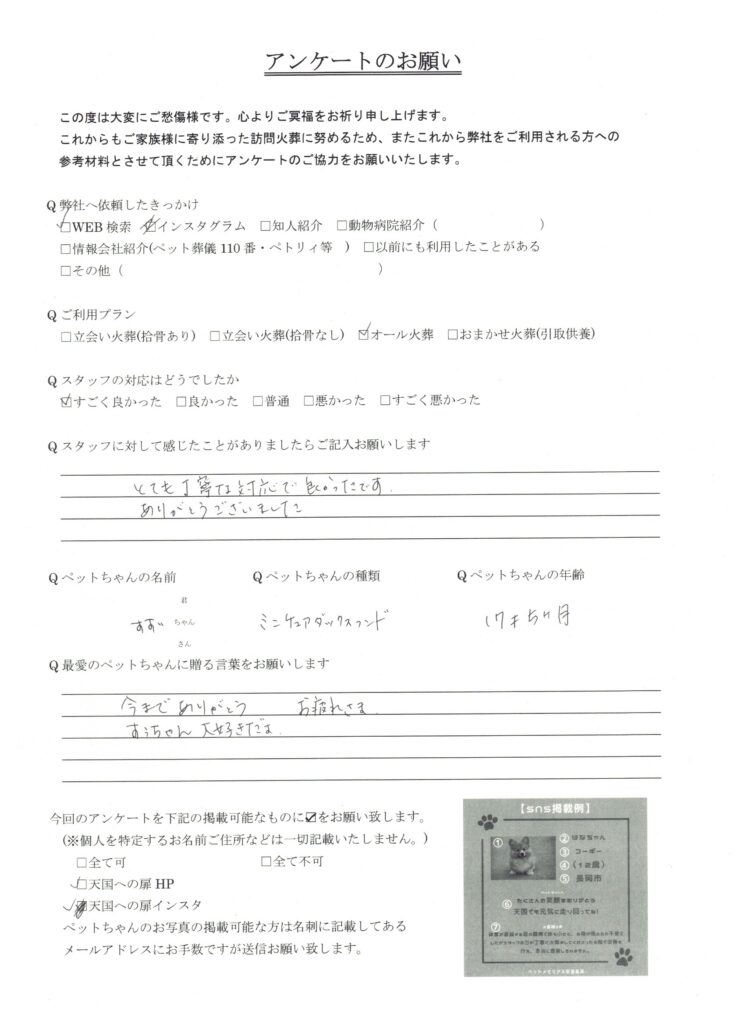 アンケートのお願い
この度は大変にご愁傷様です。心よりご冥福をお祈り申し上げます。
これからもご家族様に寄り添った訪問火葬に努めるため、またこれから弊社をご利用される方への
参考材料とさせて頂くためにアンケートのご協力をお願いいたします。
Q 弊社へ依頼したきっかけ
☑WEB 検索 ☑インスタグラム □知人紹介 □動物病院紹介（ ）
□情報会社紹介(ペット葬儀 110 番・ペトリィ等 ) □以前にも利用したことがある
□その他（ ）
Q ご利用プラン
□立会い火葬(拾骨あり) □立会い火葬(拾骨なし) ☑オール火葬 □おまかせ火葬(引取供養)
Q スタッフの対応はどうでしたか
☑すごく良かった □良かった □普通 □悪かった □すごく悪かった
Q スタッフに対して感じたことがありましたらご記入お願いします
とても丁寧な対応で良かったです.
ありがとうございました
Q ペットちゃんの名前 Q ペットちゃんの種類 Q ペットちゃんの年齢
君
ちゃん ミニチュアダックスフンド 17才5ヶ月
さん
Q 最愛のペットちゃんに贈る言葉をお願いします
今まで ありがとう お疲れさま.
ちゃん 大好きだよ.
今回のアンケートを下記の掲載可能なものに☑をお願い致します。
(※個人を特定するお名前ご住所などは一切記載いたしません。)
□全て可 □全て不可
☑天国への扉 HP
☑天国への扉インスタ
ペットちゃんのお写真の掲載可能な方は名刺に記載してある
メールアドレスにお手数ですが送信お願い致します。
【sns掲載例】
① ② はなちゃん
③ コーギー
④ (12歳)
⑤ 長岡市
⑥ たくさんの笑顔をありがとう
天国でも元気に走り回ってね!
⑦